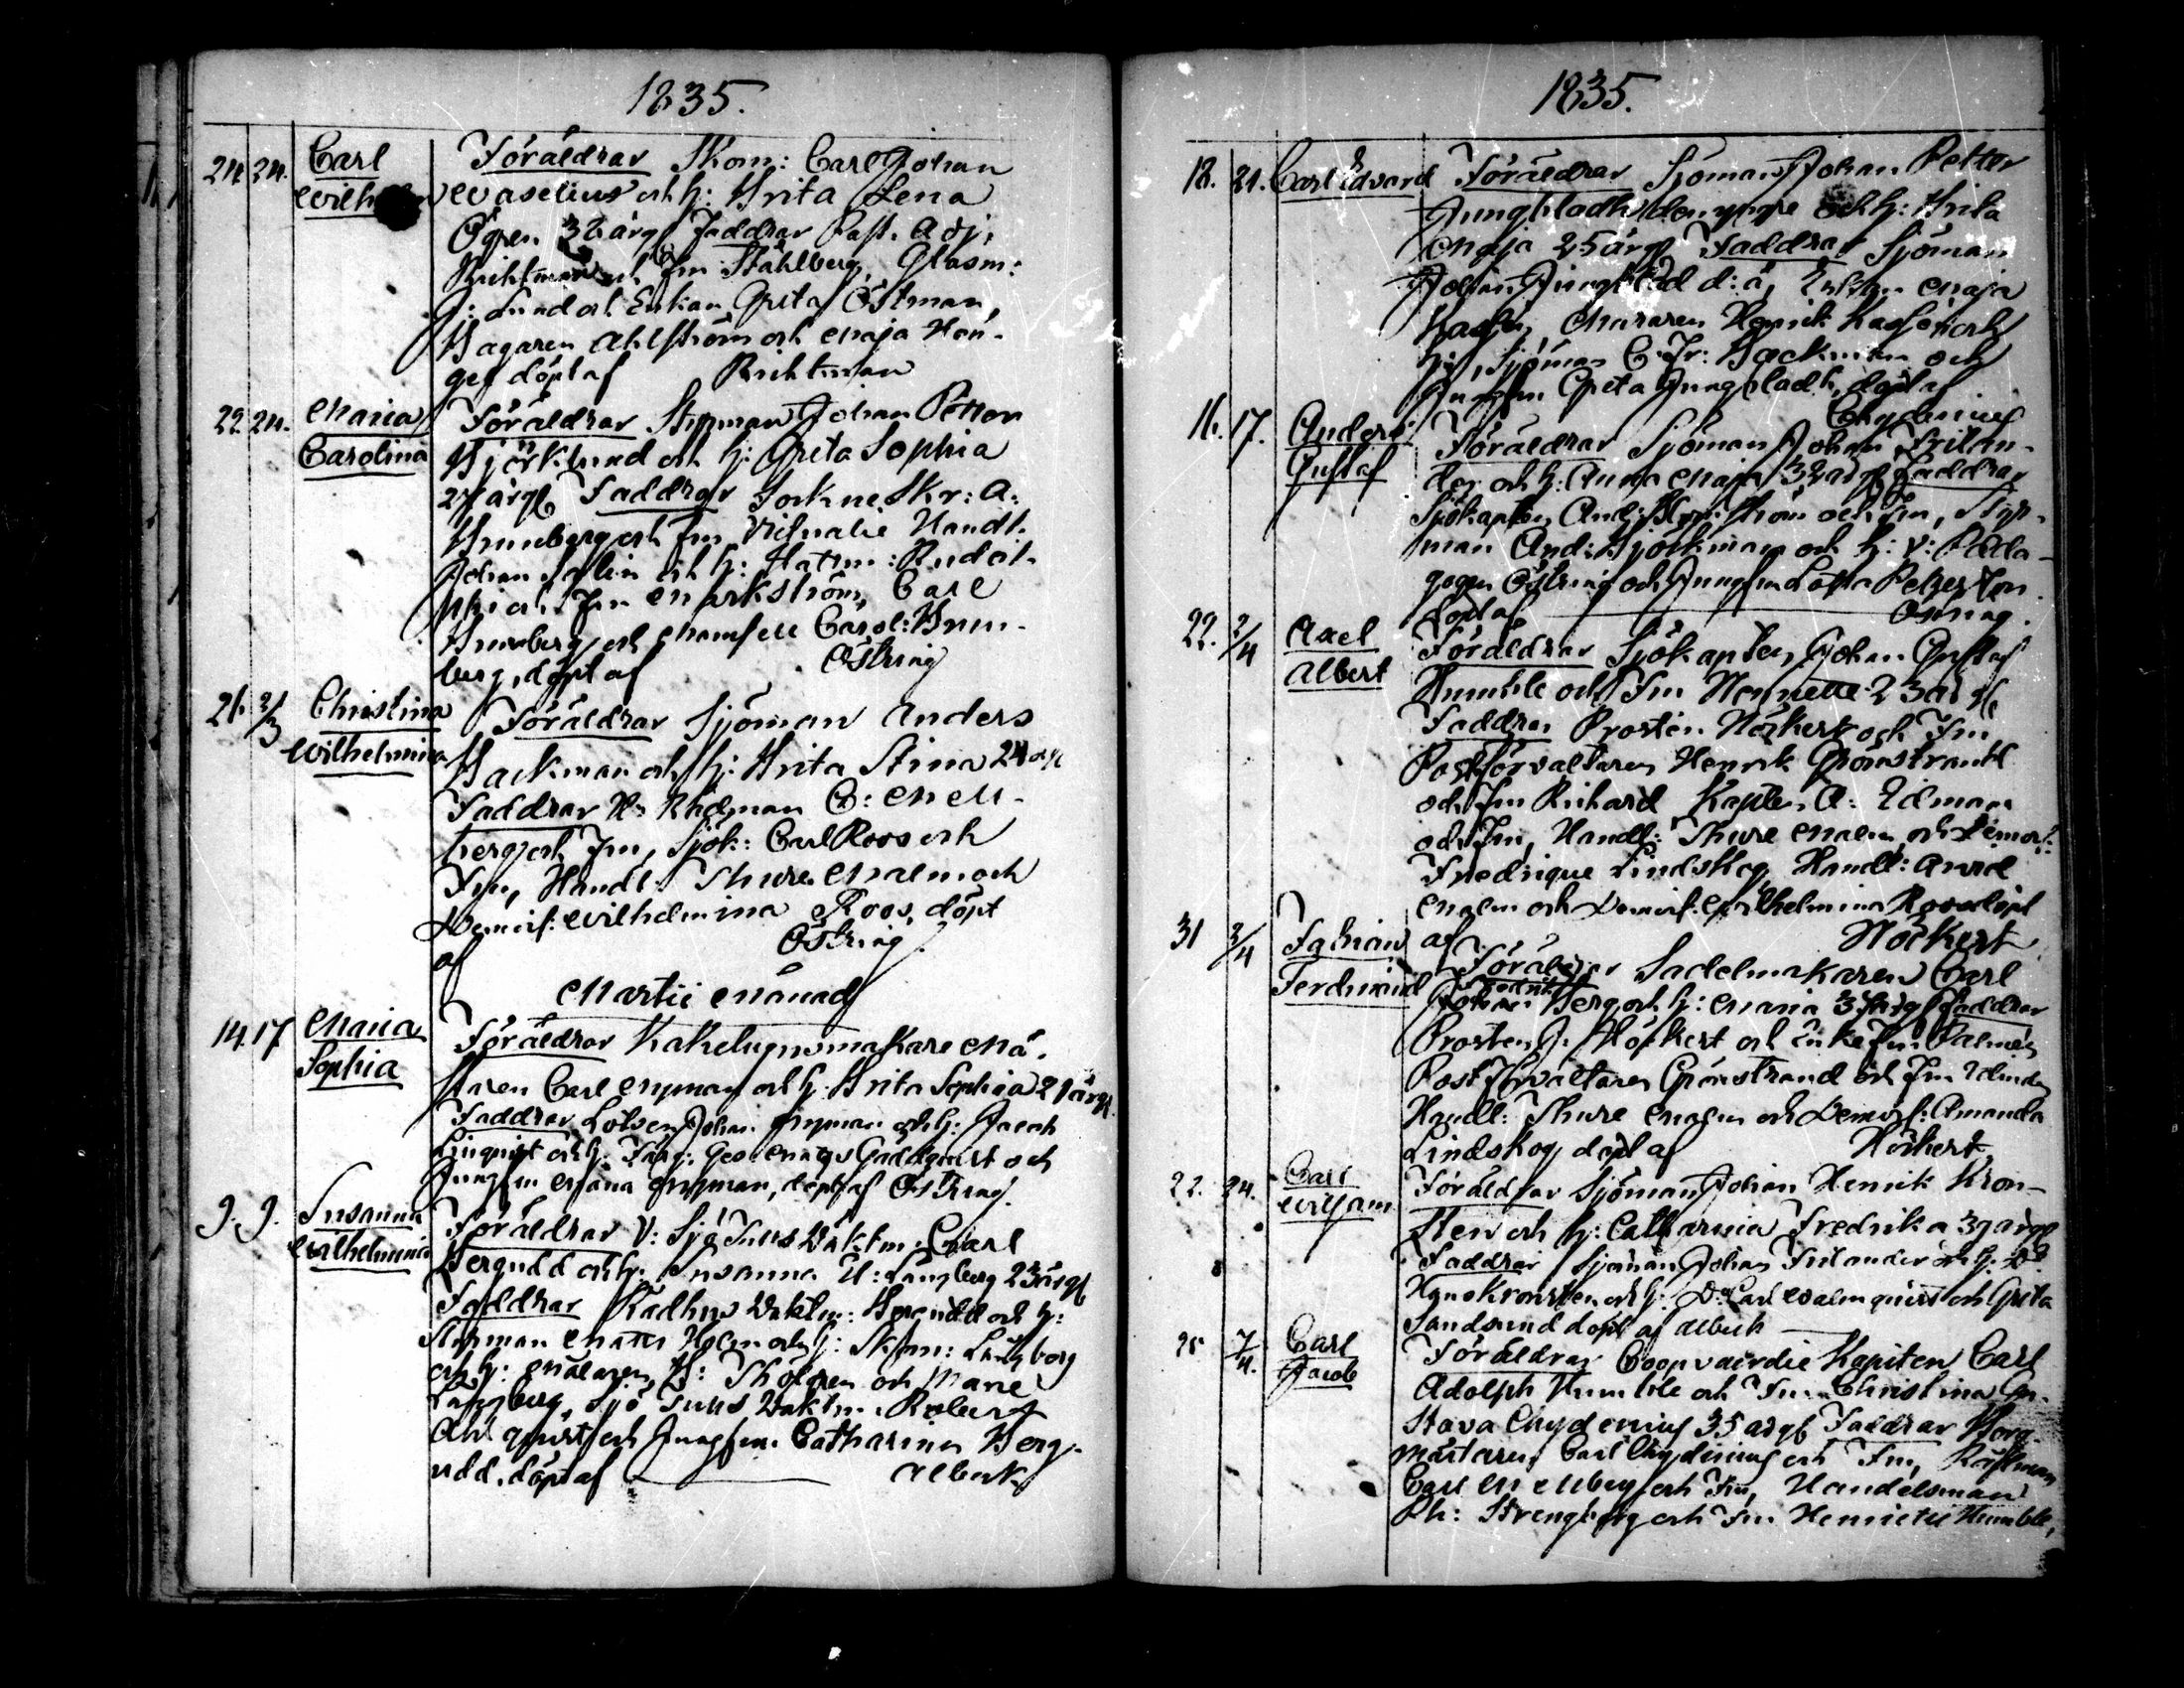 1835.
24 24. Carl Wilh Föräldrar Skom: Carl Johan
Waselius och h: Brita Lena
Ögren 32 årg Faddrar Past. Adj.
Brichtman och Fru Ståhlberg, Glasm:
Lund och Enkan Greta Östman,
Bagaren Ahlström och Maja Hon-
ges döpt af Brichtman
22. 24. Maria Carolina Föräldrar Styrman Johan Petter
Björklund och h: Greta Sophia
27 årg Faddrar Sockne Skr: A:
Brunberg och Fru Handl:
Johan och h: Hattm:
och Fru Markström, Carl
Brunberg och Mamsell Carol: Brun-
berg, döpt af Östring
26. 2/3 Christina Wilhelmina Föräldrar Sjöman Anders
Backman och h: Brita Stina 24 årg
Faddrar Hr Rådman C: Mell-
berg och Fru, Sjök: Carl Roos och
Fru, Handl: Thure Malm och
Demois: Wilhelmina Roos, döpt
af Östring.
Martii Månad
14. 17 Maria Sophia Föräldrar Kakelugnsmakare Mä-
staren Carl Nyman och h: Brita Sophia 21 årg
Faddrar Lotsen Johan Nyman och h: Jacob
Linquist och h: Färg: Ges: Gaddquist och
Jungfru Maria Nyman, döpt af Östring.
9. 9. Susanna Wilhelmina Föräldrar V: Sjö Tulls Vaktm: Carl
Bergudd och h: Susanna U: Långberg 23 årg
Faddrar Rådhus Vaktm: Bergudd och h:
Styrman Matts Holm och h: Skom: Långberg
och h: Målaren H: Sköldgren och Marie
Långberg, Sjö Tulls Vaktm: Robert
Ahlquist och Jungfru Catharina Berg-
udd. döpt af Alberk
1835.
18. 21. Carl Edvard Föräldrar Sjöman Johan Petter
Jungbladh den yngre och h: Brita
Maja 25 årg Faddrar Sjöman
Johan Jungblad d: ä, Enkan Maja
Hasse, Muraren Henrik och
h:, Sjöman C: Fr: Backman och
Jungfru Greta Jungbladh, döpt af
Chydenius
16. 17. Anders Gustaf Föräldrar Sjöman Johan Frilan-
der och h: Anna Maja 32 årg Faddrar
Sjökapten And: Blomström och Fru, Styr-
man And: Björkman och h: V: Päda-
gogen Östring och Jungfru Lotta
döpt af Östring.
22. 2/4 Axel Albert Föräldrar Sjökapten Johan Gustaf
Humble och Fru Henriette 23 årg
Faddrar Prosten Höckert och Fru,
Postförvaltaren Henrik Grönstrand
och Fru Richard Kapten A: Edman
och Fru, Handl: Thure Malm och Demois:
Fredrique Lindskog Handl: Aurel
Malm och Demois: Wilhelmina Roos döpt
af Höckert
31 2/4 Fabian Ferdinand Föräldrar Sadelmakaren Carl
Fredrik
Berg och h: Maria årg Faddrar
Prosten J. Höckert och Enke Fru Palmén
Postförvaltaren Grönstrand och Fru
Handl: Thure Malm och Demois: Amanda
Lindskog döpt af Höckert
22. 24. Carl Wiljam Föräldrar Sjöman Johan Henrik Kron-
sten och h: Catharina Fredrika 39 årg
Faddrar Sjöman Johan Frilander och h: Do
Kronsten och h: Do Carl Walmquist och Greta
Sandsund döpt af Alberk
25 7/4. Carl Jacob Föräldrar Coopvaerdie Kapiten Carl
Adolph Humble och Fru Christina Gu-
stava Chydenius 35 årg Faddrar Borg-
mästaren Carl Chydenius och Fru, Rådman
Carl Mellberg och Fru, Handelsman
Ph: Strengberg och Fru Henriette Humble,